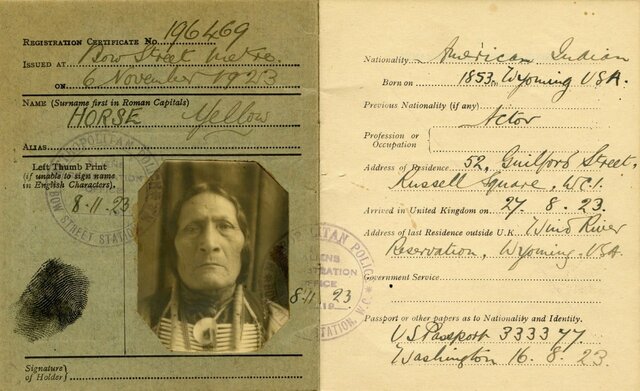 REGISTRATION CERTIFICATE No. 196469
ISSUED AT Bow Street Metro.
ON 6 November 1923
NAME (Surname first in Roman Capitals)
HORSE Yellow
ALIAS
Left Thumb Print
(if unable to sign name
in English Characters).
8-11-23
METROPOLITAN POLICE
BOW STREET STATION
Signature
of
Holder
METROPOLITAN POLICE
ALIENS
REGISTRATION
OFFICE
8-11 23
STATION, W.C.
Nationality American Indian
Born on 1853, Wyoming USA.
Previous Nationality (if any)
Profession or
Occupation
Actor
Address of Residence 52, Guilford Street,
Russell Square, W.C.1.
Arrived in United Kingdom on 27. 8. 23.
Address of last Residence outside U.K. Wind River
Reservation, Wyoming, USA
Government Service
Passport or other papers as to Nationality and Identity.
US Passport 333377
Washington 16. 8. 23.